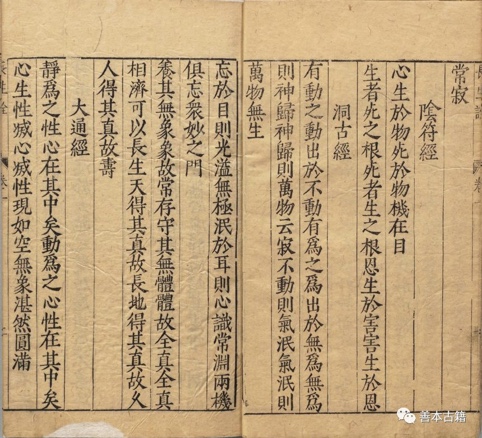 常寂
陰符經
心生於物死於物機在目
生者死之根死者生之根恩生於害害生於恩
洞古經
有動之動出於不動有爲之爲出於無爲無爲
則神歸神歸則萬物云寂不動則氣泯氣泯則
萬物無生
忘於目則光溢無極泯於耳則心識常淵兩機
俱忘衆妙之門
養其無象象故常存守其無體體故全真全真
相濟可以長生天得其真故長地得其真故久
人得其真故壽
大通經
靜爲之性心在其中矣動爲之心性在其中矣
心生性滅心滅性現如空無象湛然圓滿
長生詮
卷一
善本古籍